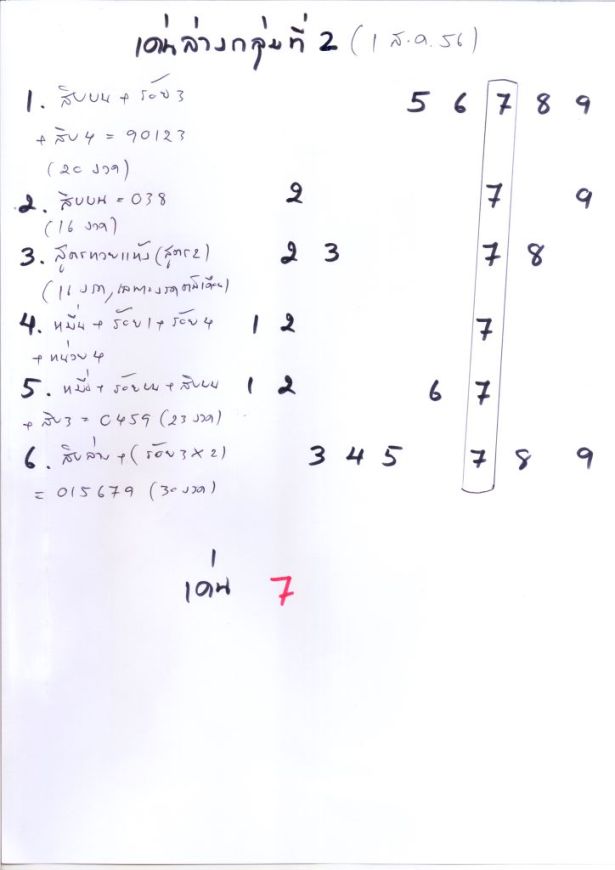 เด่นล่างกลุ่มที่ 2 (1 ส.ค. 56)
1. สิบบน + ร้อย 3 5 6 7 8 9
+ สิบ 4 = 90123
(20 งวด)
2. สิบบน = 038 2 7 9
(16 งวด)
3. สูตรทวยแท้ง (สูตร 2) 2 3 7 8
(16 งวด, เฉพาะงวดต้นเดือน)
4. หมื่น + ร้อย 1 + ร้อย 4 1 2 7
+ หน่วย 4
5. หมื่น + ร้อยบน + สิบบน 1 2 6 7
+ สิบ 3 = 0459 (23 งวด)
6. สิบล่าง + (ร้อย 3 X 2) 3 4 5 7 8 9
= 015679 (30 งวด)
เด่น 7